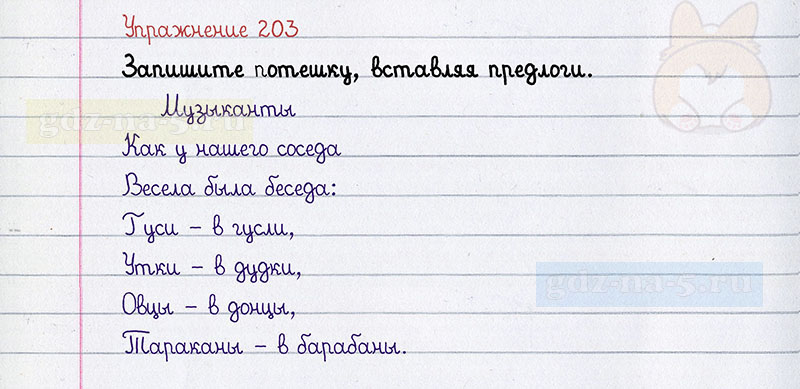 Упражнение 203
Запишите потешку, вставляя предлоги.
Музыканты
gdz-na-5.ru
Как у нашего соседа
Весела была беседа:
Гуси – в гусли,
Утки – в дудки,
gdz-na-5.ru
Овцы – в донцы,
Тараканы – в барабаны.